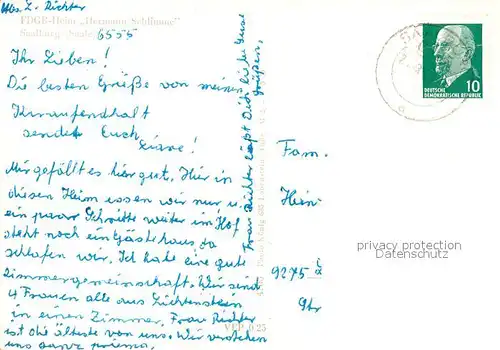 Abs. L. Richter
FDGB-Heim „Hermann Schlimme"
Saalburg (Saale) 6555
Ihr Lieben!
Die besten Grüße von meinem
Kuraufendhalt
sendet Euch
Liane!
Mir gefällt es hier gut. Hier in
diesen Heim essen wir nur u.
ein paar Schritte weiter im Hof
steht noch ein Gästehaus, da
schlafen wir. Ich habe eine gute
Zimmergemeinschaft. Wir sind
4 Frauen alle aus Lichtenstein
in einen Zimmer. Frau Richter
ist die älteste von uns. Wir verstehen
uns ganz prima.
Frau Richter läßt Dich liebe
grüßen.
VEB
0,25
Fam.
Hein
9275
DEUTSCHE
DEMOKRATISCHE REPUBLIK
10
privacy protection
Datenschutz